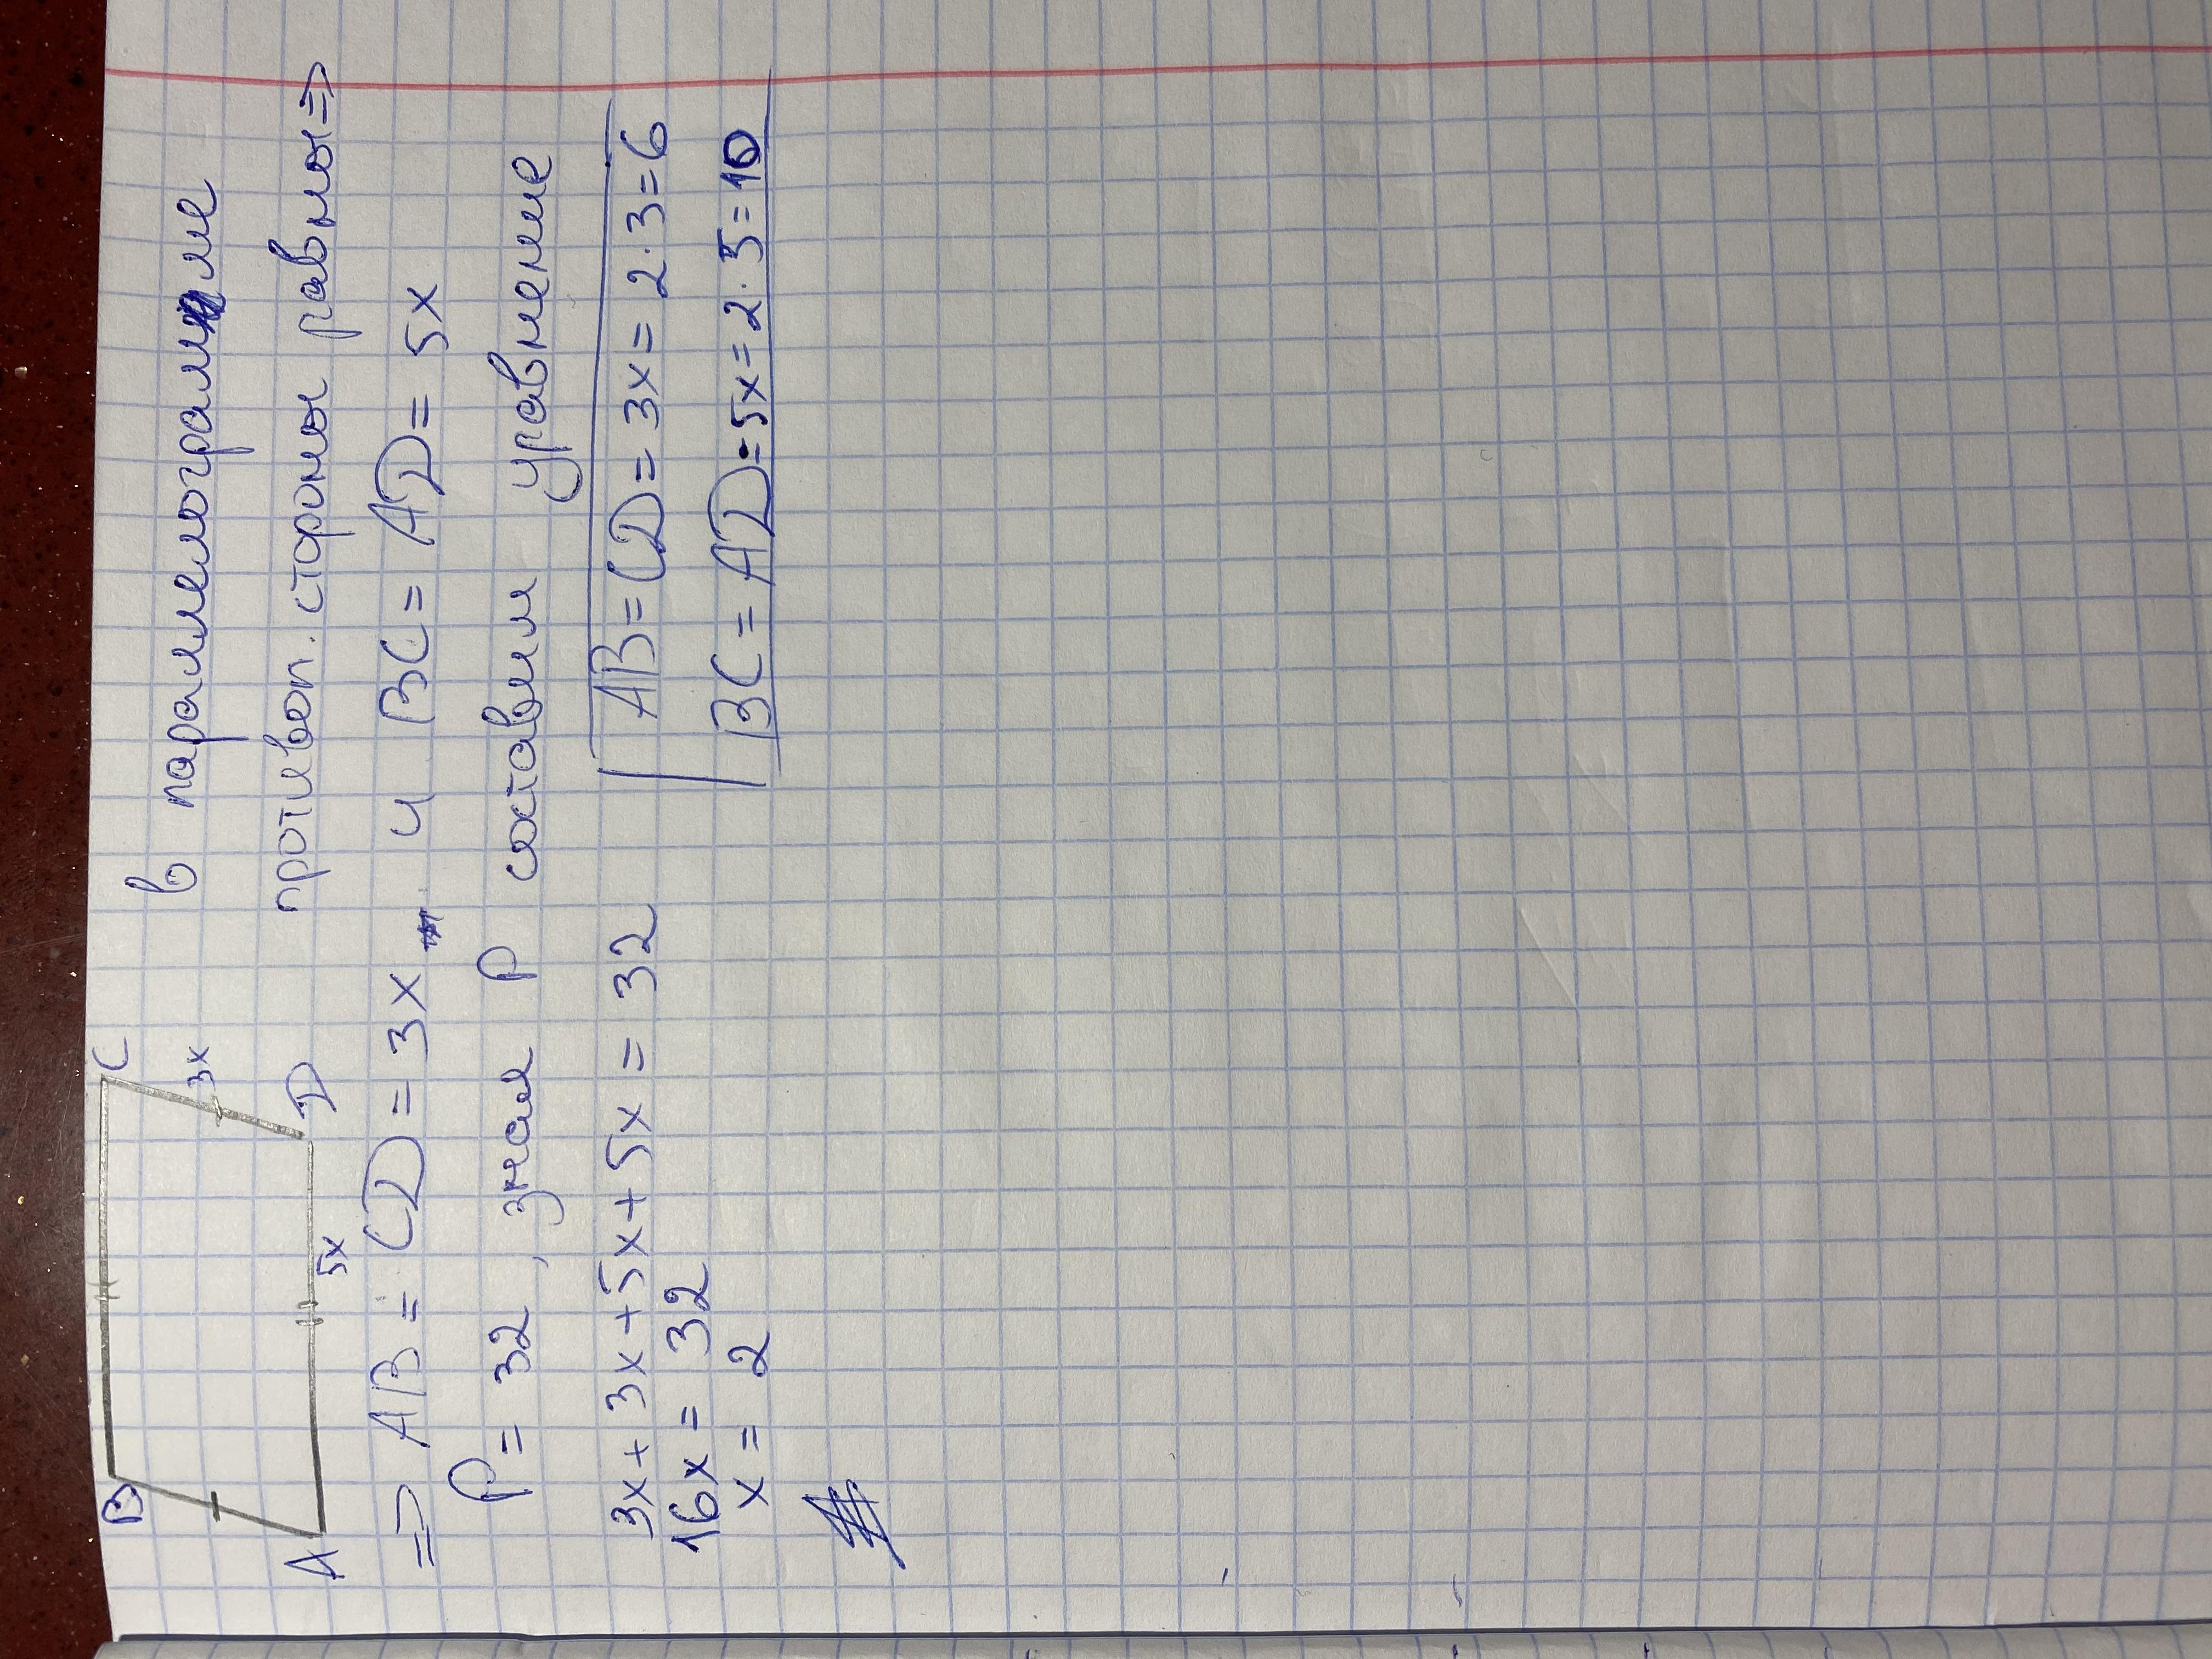 B C
3x
A 5x D
в параллелограмме
противоп. стороны равны =>
=> AB = CD = 3x и BC = AD = 5x
P = 32, зная P составим уравнение
3x + 3x + 5x + 5x = 32
16x = 32
x = 2
AB = CD = 3x = 2 · 3 = 6
BC = AD = 5x = 2 · 5 = 10